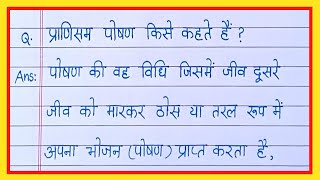 Q. प्राणिसम पोषण किसे कहते हैं ?
Ans: पोषण की वह विधि जिसमें जीव दूसरे
जीव को मारकर ठोस या तरल रूप में
अपना भोजन (पोषण) प्राप्त करता है,